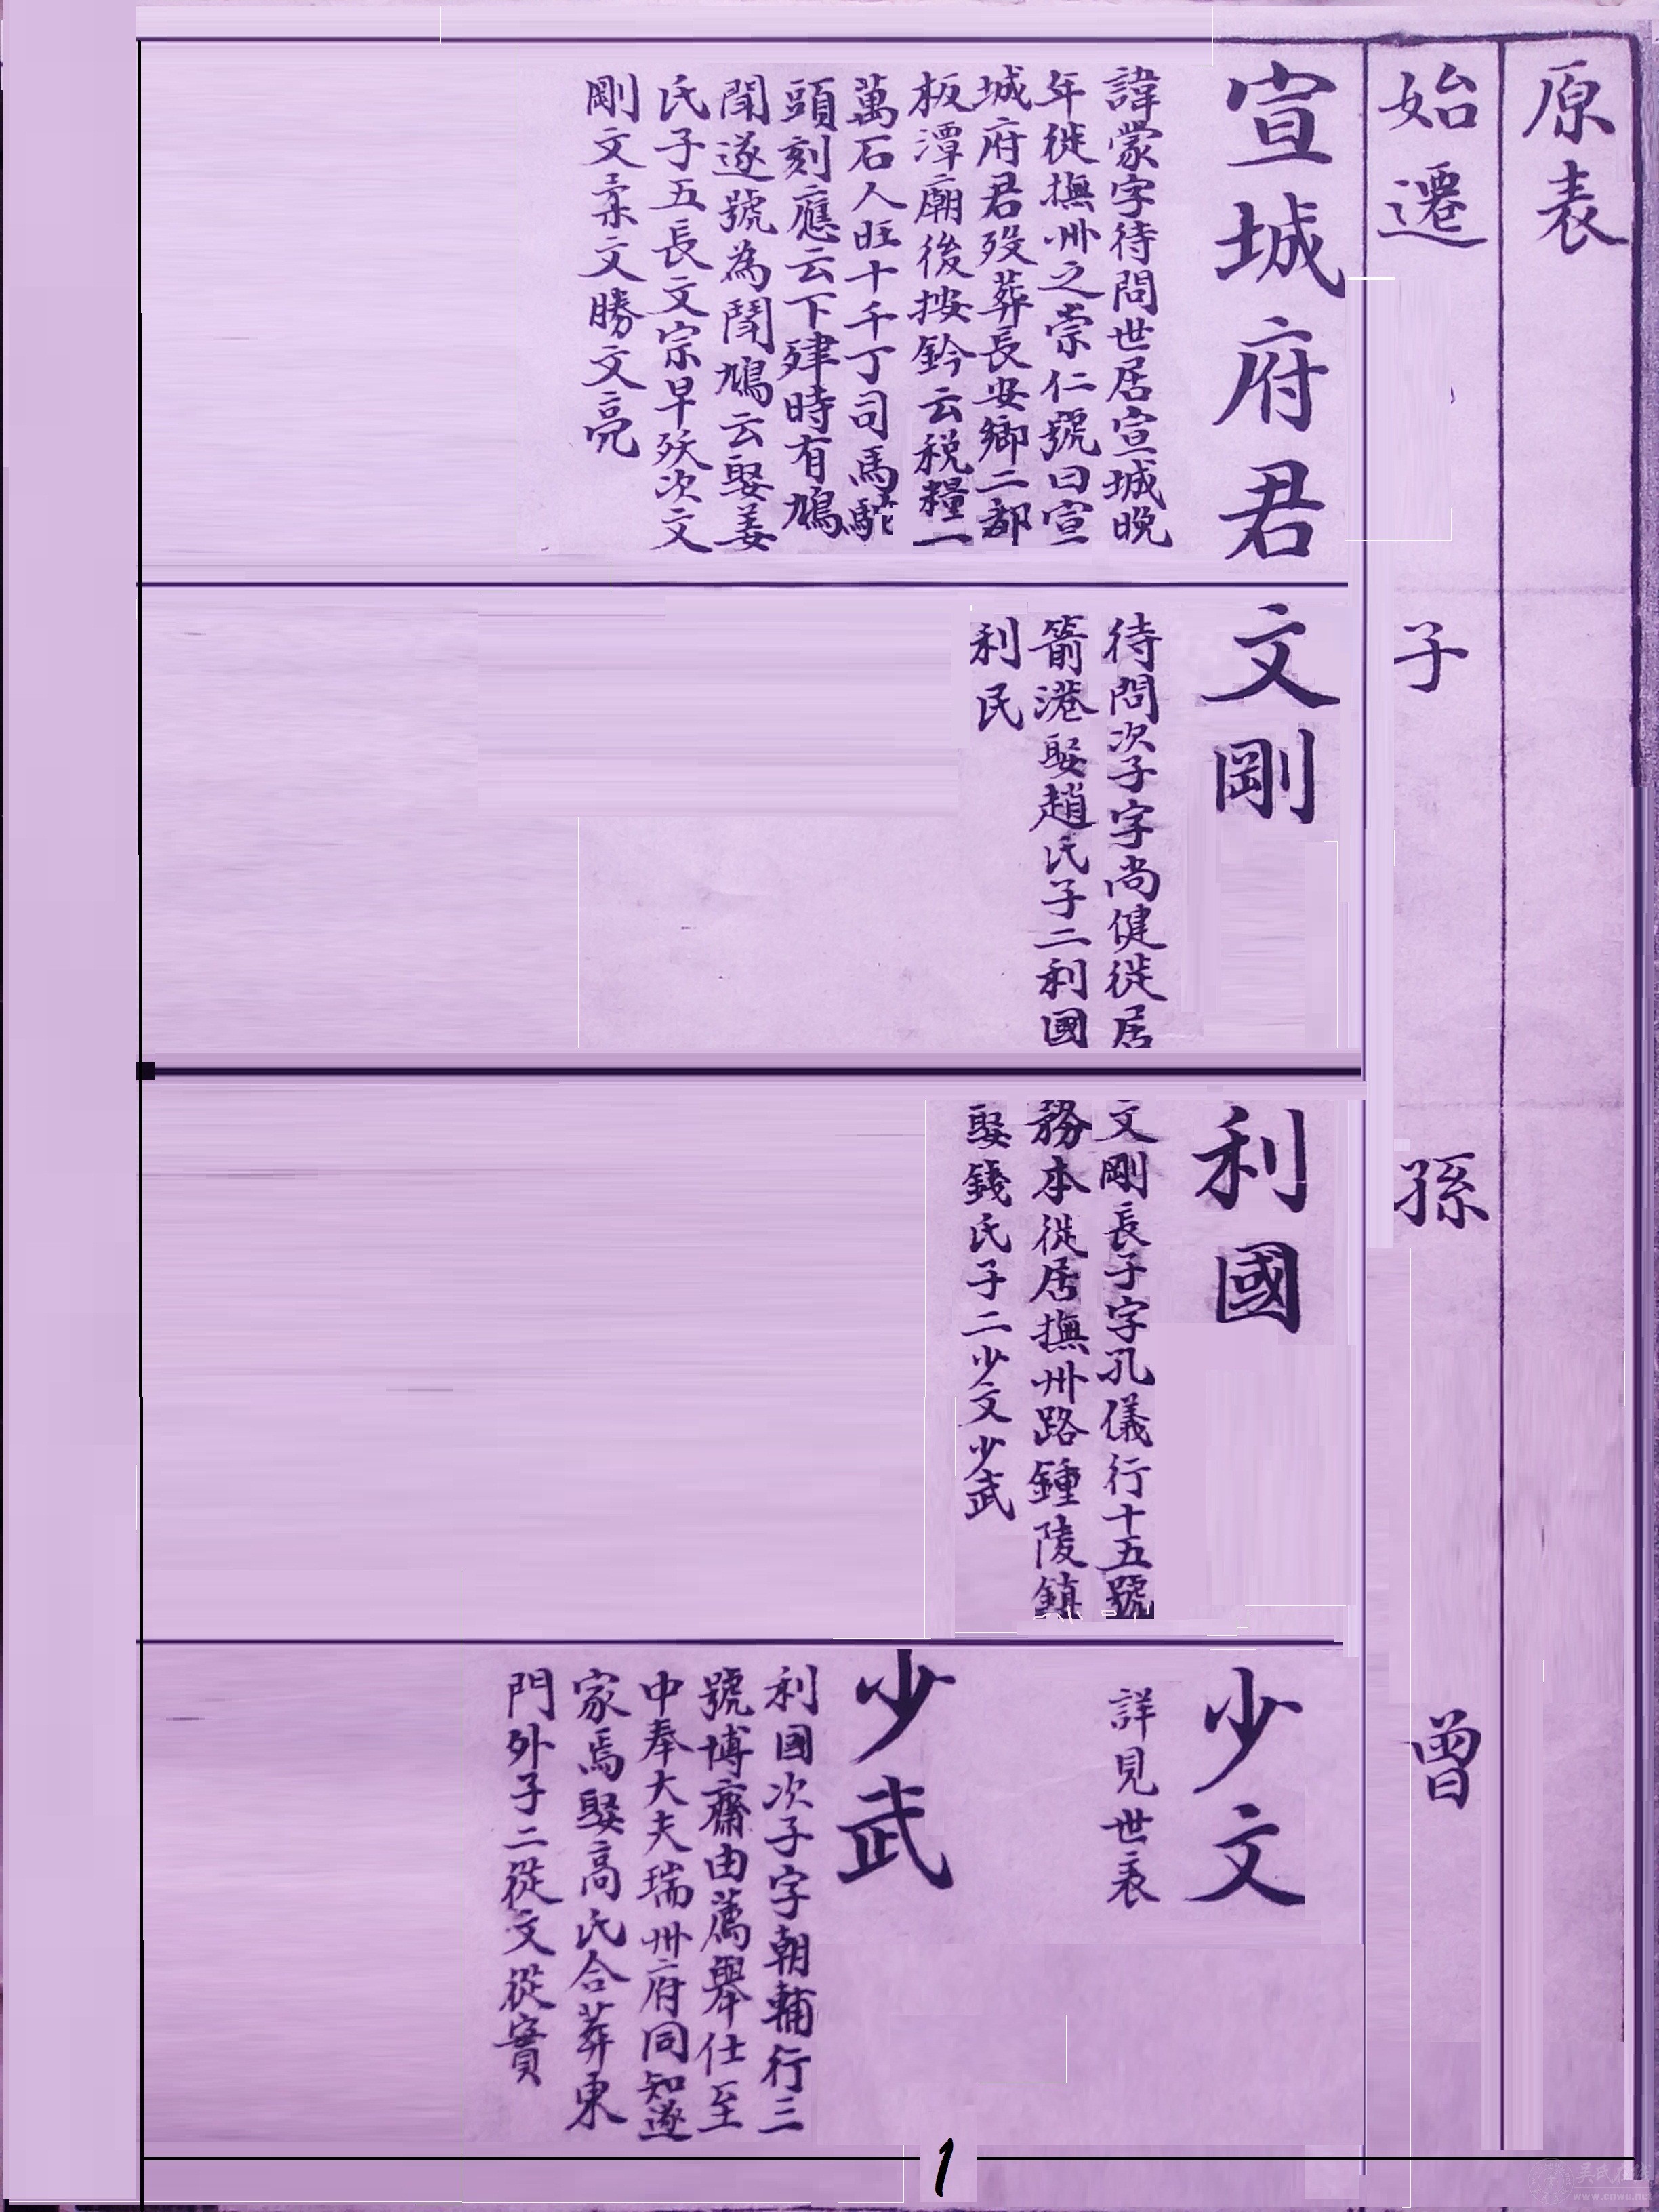 原表
始遷
宣城府君
諱蒙字待問世居宣城晚
年徙撫州之崇仁號曰宣
城府君歿葬長安鄉二都
板潭廟後按鈐云税糧二
萬石人旺十千丁司馬駝
頭刻應云下肂時有鳩
聞遂號為鬧鳩云娶姜
氏子五長文宗早殀次文
剛文柔文勝文亮
子
文剛
待問次子字尚健徙居
箭港娶趙氏子二利國
利民
孫
利國
文剛長子字孔儀行十五號
務本徙居撫州路鍾陵鎮
娶錢氏子二少文少武
曾
少文
詳見世表
少武
利國次子字朝輔行三
號博齋由薦舉仕至
中奉大夫瑞州府同知遂
家焉娶高氏合葬東
門外子二從文從實
1
吴氏在线
www.cnwu.net